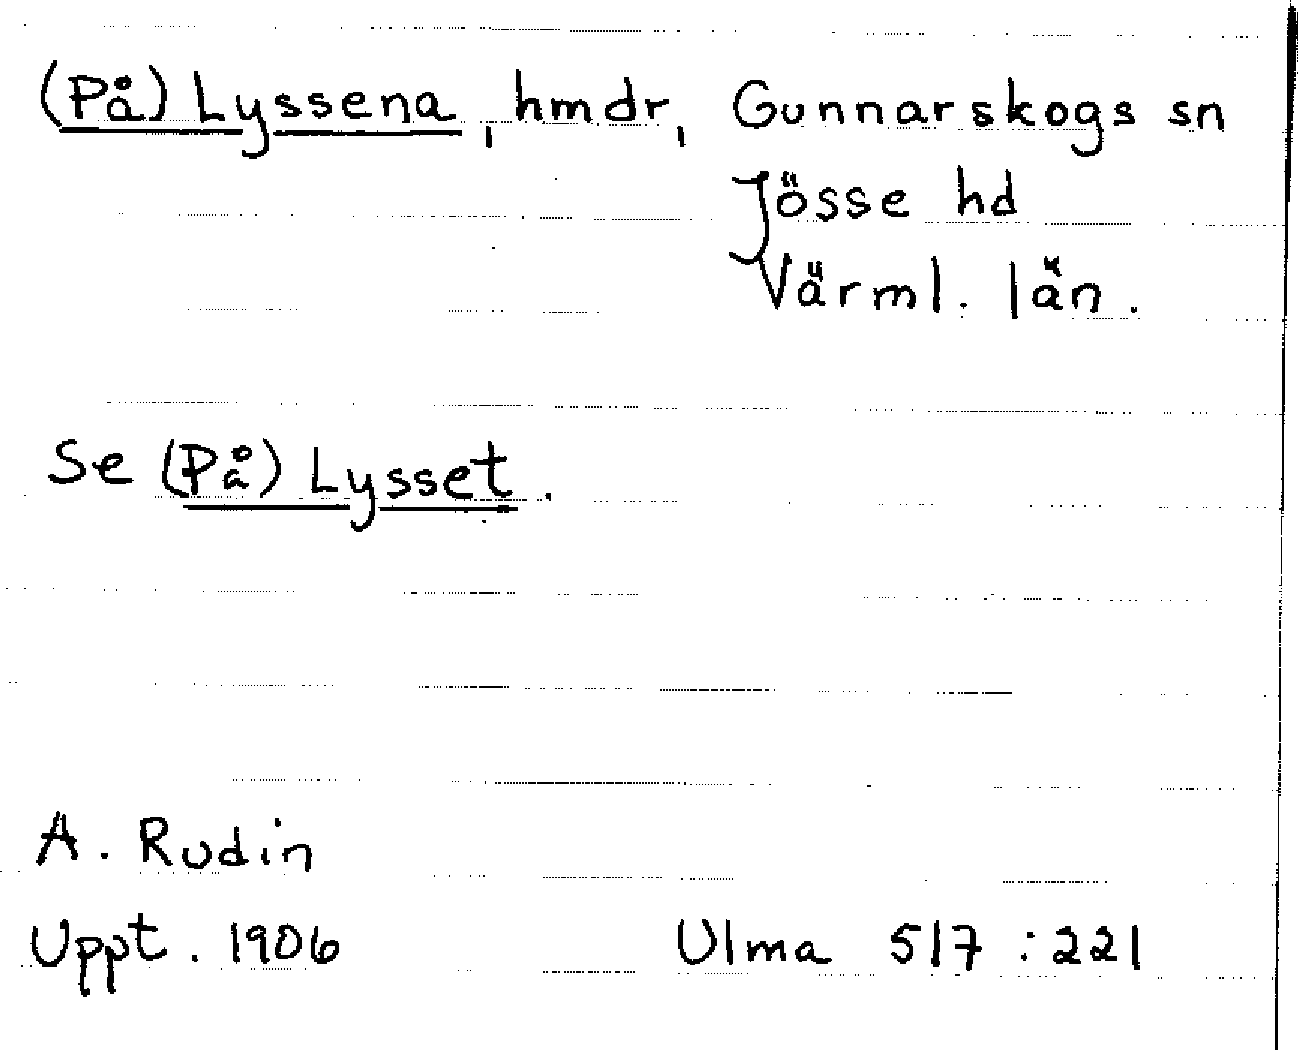 (På) Lyssena, hmdr, Gunnarskogs sn
Jösse hd
Värml. län.
Se (På) Lysset.
A. Rudin
Uppt. 1906 Ulma 517:221